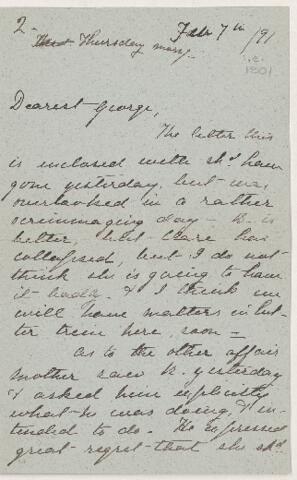 2
Thursday morng. Feb 7th /91
i.e. 1901
Dearest George,
The letter this
is inclosed with shd have
gone yesterday, but was
overlooked in a rather
scrimmaging day – B. is
better, but Clare has
collapsed, but I do not
think she is going to have
it badly. & I think we
will have matters in bet-
ter trim here, soon –
As to the other affair
Mother saw K. yesterday
& asked him explicitly
what he was doing, & in-
tended to do. He expressed
great regret that she shd